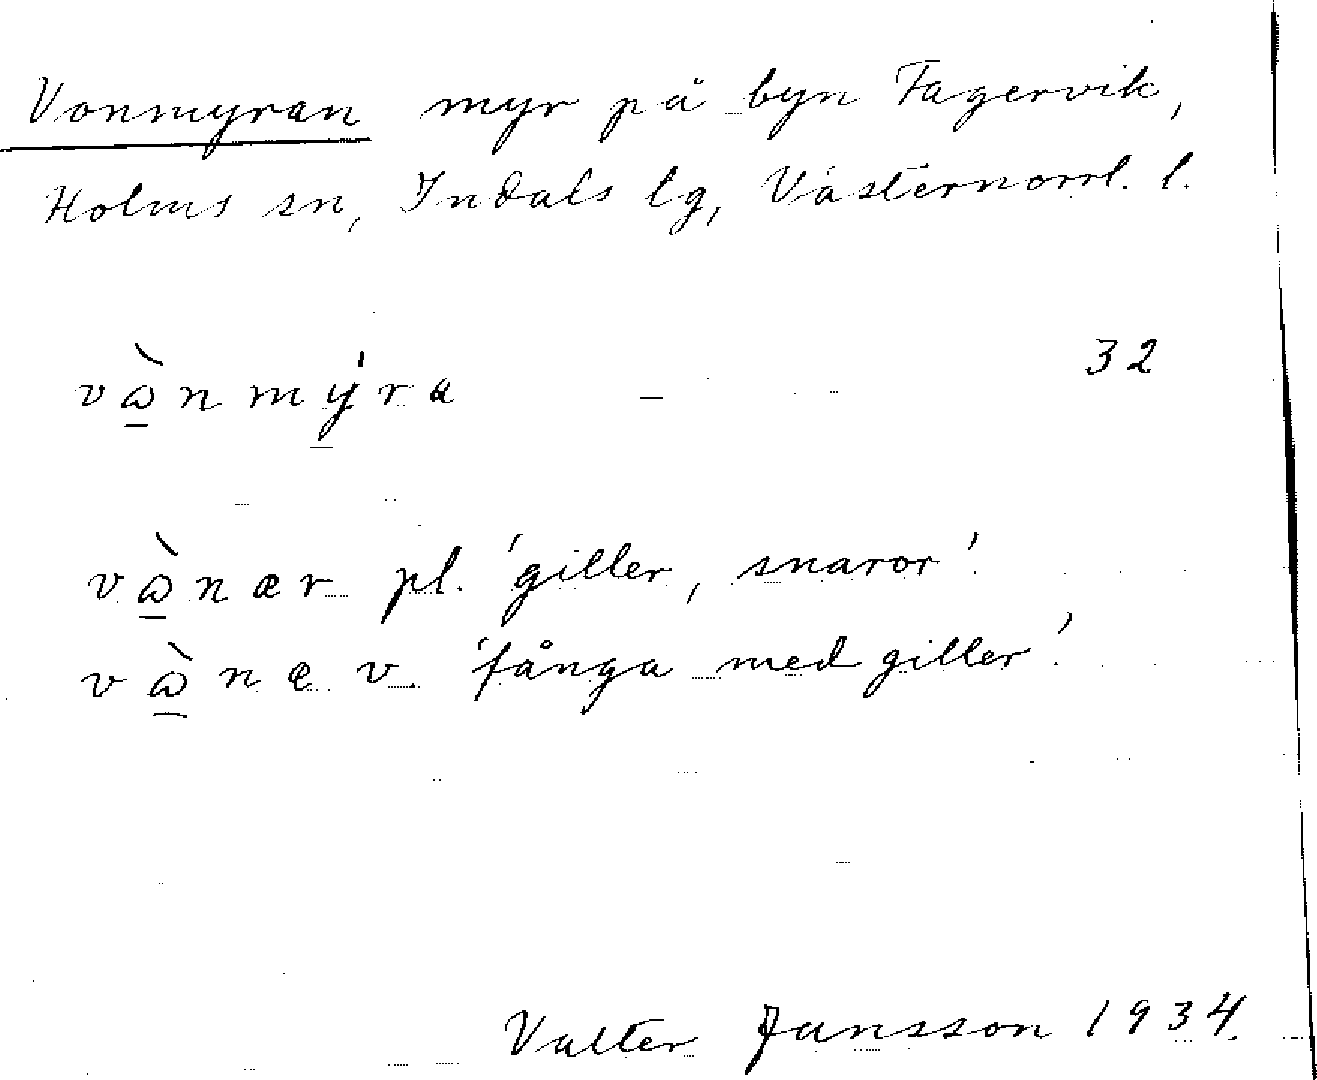 Vonmyran myr på byn Fagervik,
Holms sn, Indals lg, Västernorrl. l.
vɷ̀nmýra 32
vɷ̀nær pl. 'giller, snaror'.
vɷ̀ne v 'fånga med giller'.
Valter Jansson 1934.